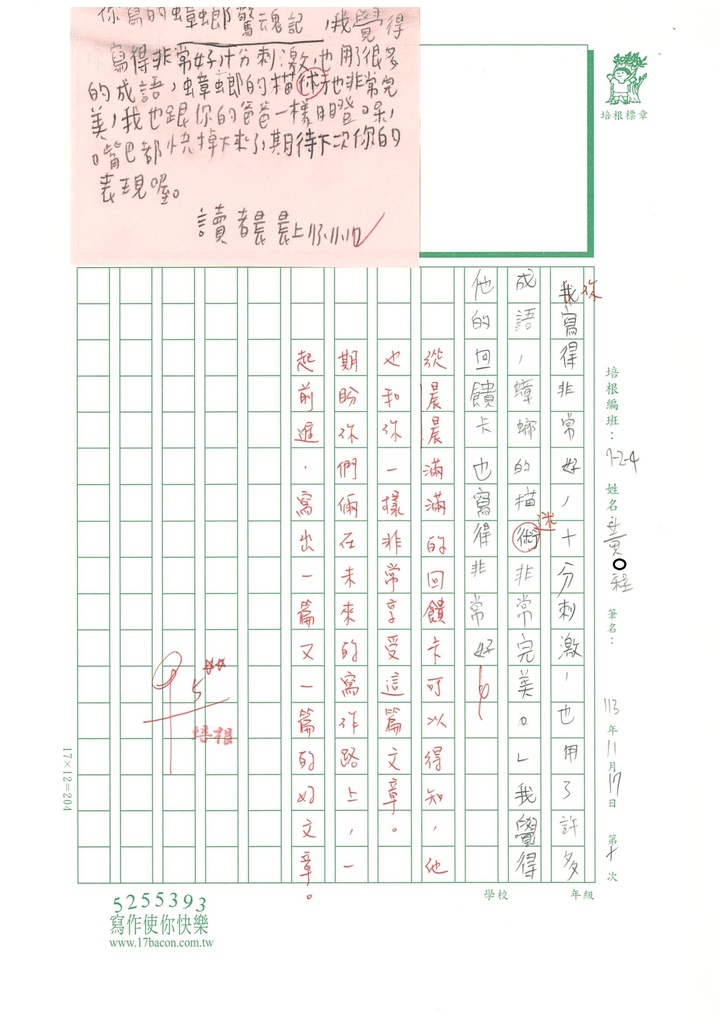 你寫的蟑螂驚魂記,我覺得
寫得非常好,十分刺激,也用了很多
的成語,蟑螂的描術也非常完
美,我也跟你的爸爸一樣目瞪口呆,
嘴巴都快掉下來了,期待下次你的
表現喔。
讀者晨晨上113.11.17
培根標章
培根編班:1-2-4 姓名:黃 程 筆名: 113年11月17日 第十次
我寫得非常好,十分刺激,也用了許多
你
成語,蟑螂的描術非常完美。」我覺得
述
他的回饋卡也寫得非常好
從晨晨滿滿的回饋卡可以得知,他
也和你一樣非常享受這篇文章。
期盼你們倆在未來的寫作路上,一
起前進,寫出一篇又一篇的好文章。
5☆☆
培根
17×12=204
學校
年級
5255393
寫作使你快樂
www.17bacon.com.tw